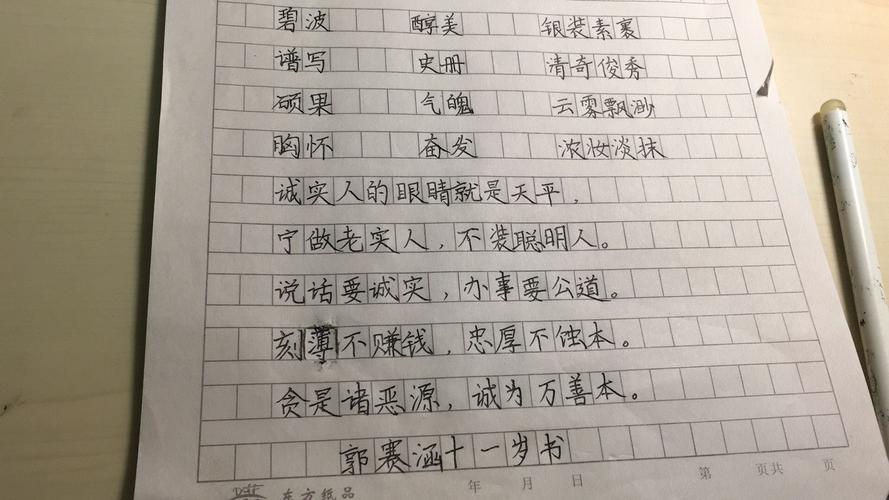 碧波 醇美 银装素裹
谱写 史册 清奇俊秀
硕果 气魄 云雾飘渺
胸怀 奋发 浓妆淡抹
诚实人的眼睛就是天平，
宁做老实人，不装聪明人。
说话要诚实，办事要公道。
刻薄不赚钱，忠厚不蚀本。
贪是诸恶源，诚为万善本。
郭赛涵十一岁书
东方纸品 年 月 日 第 页共 页